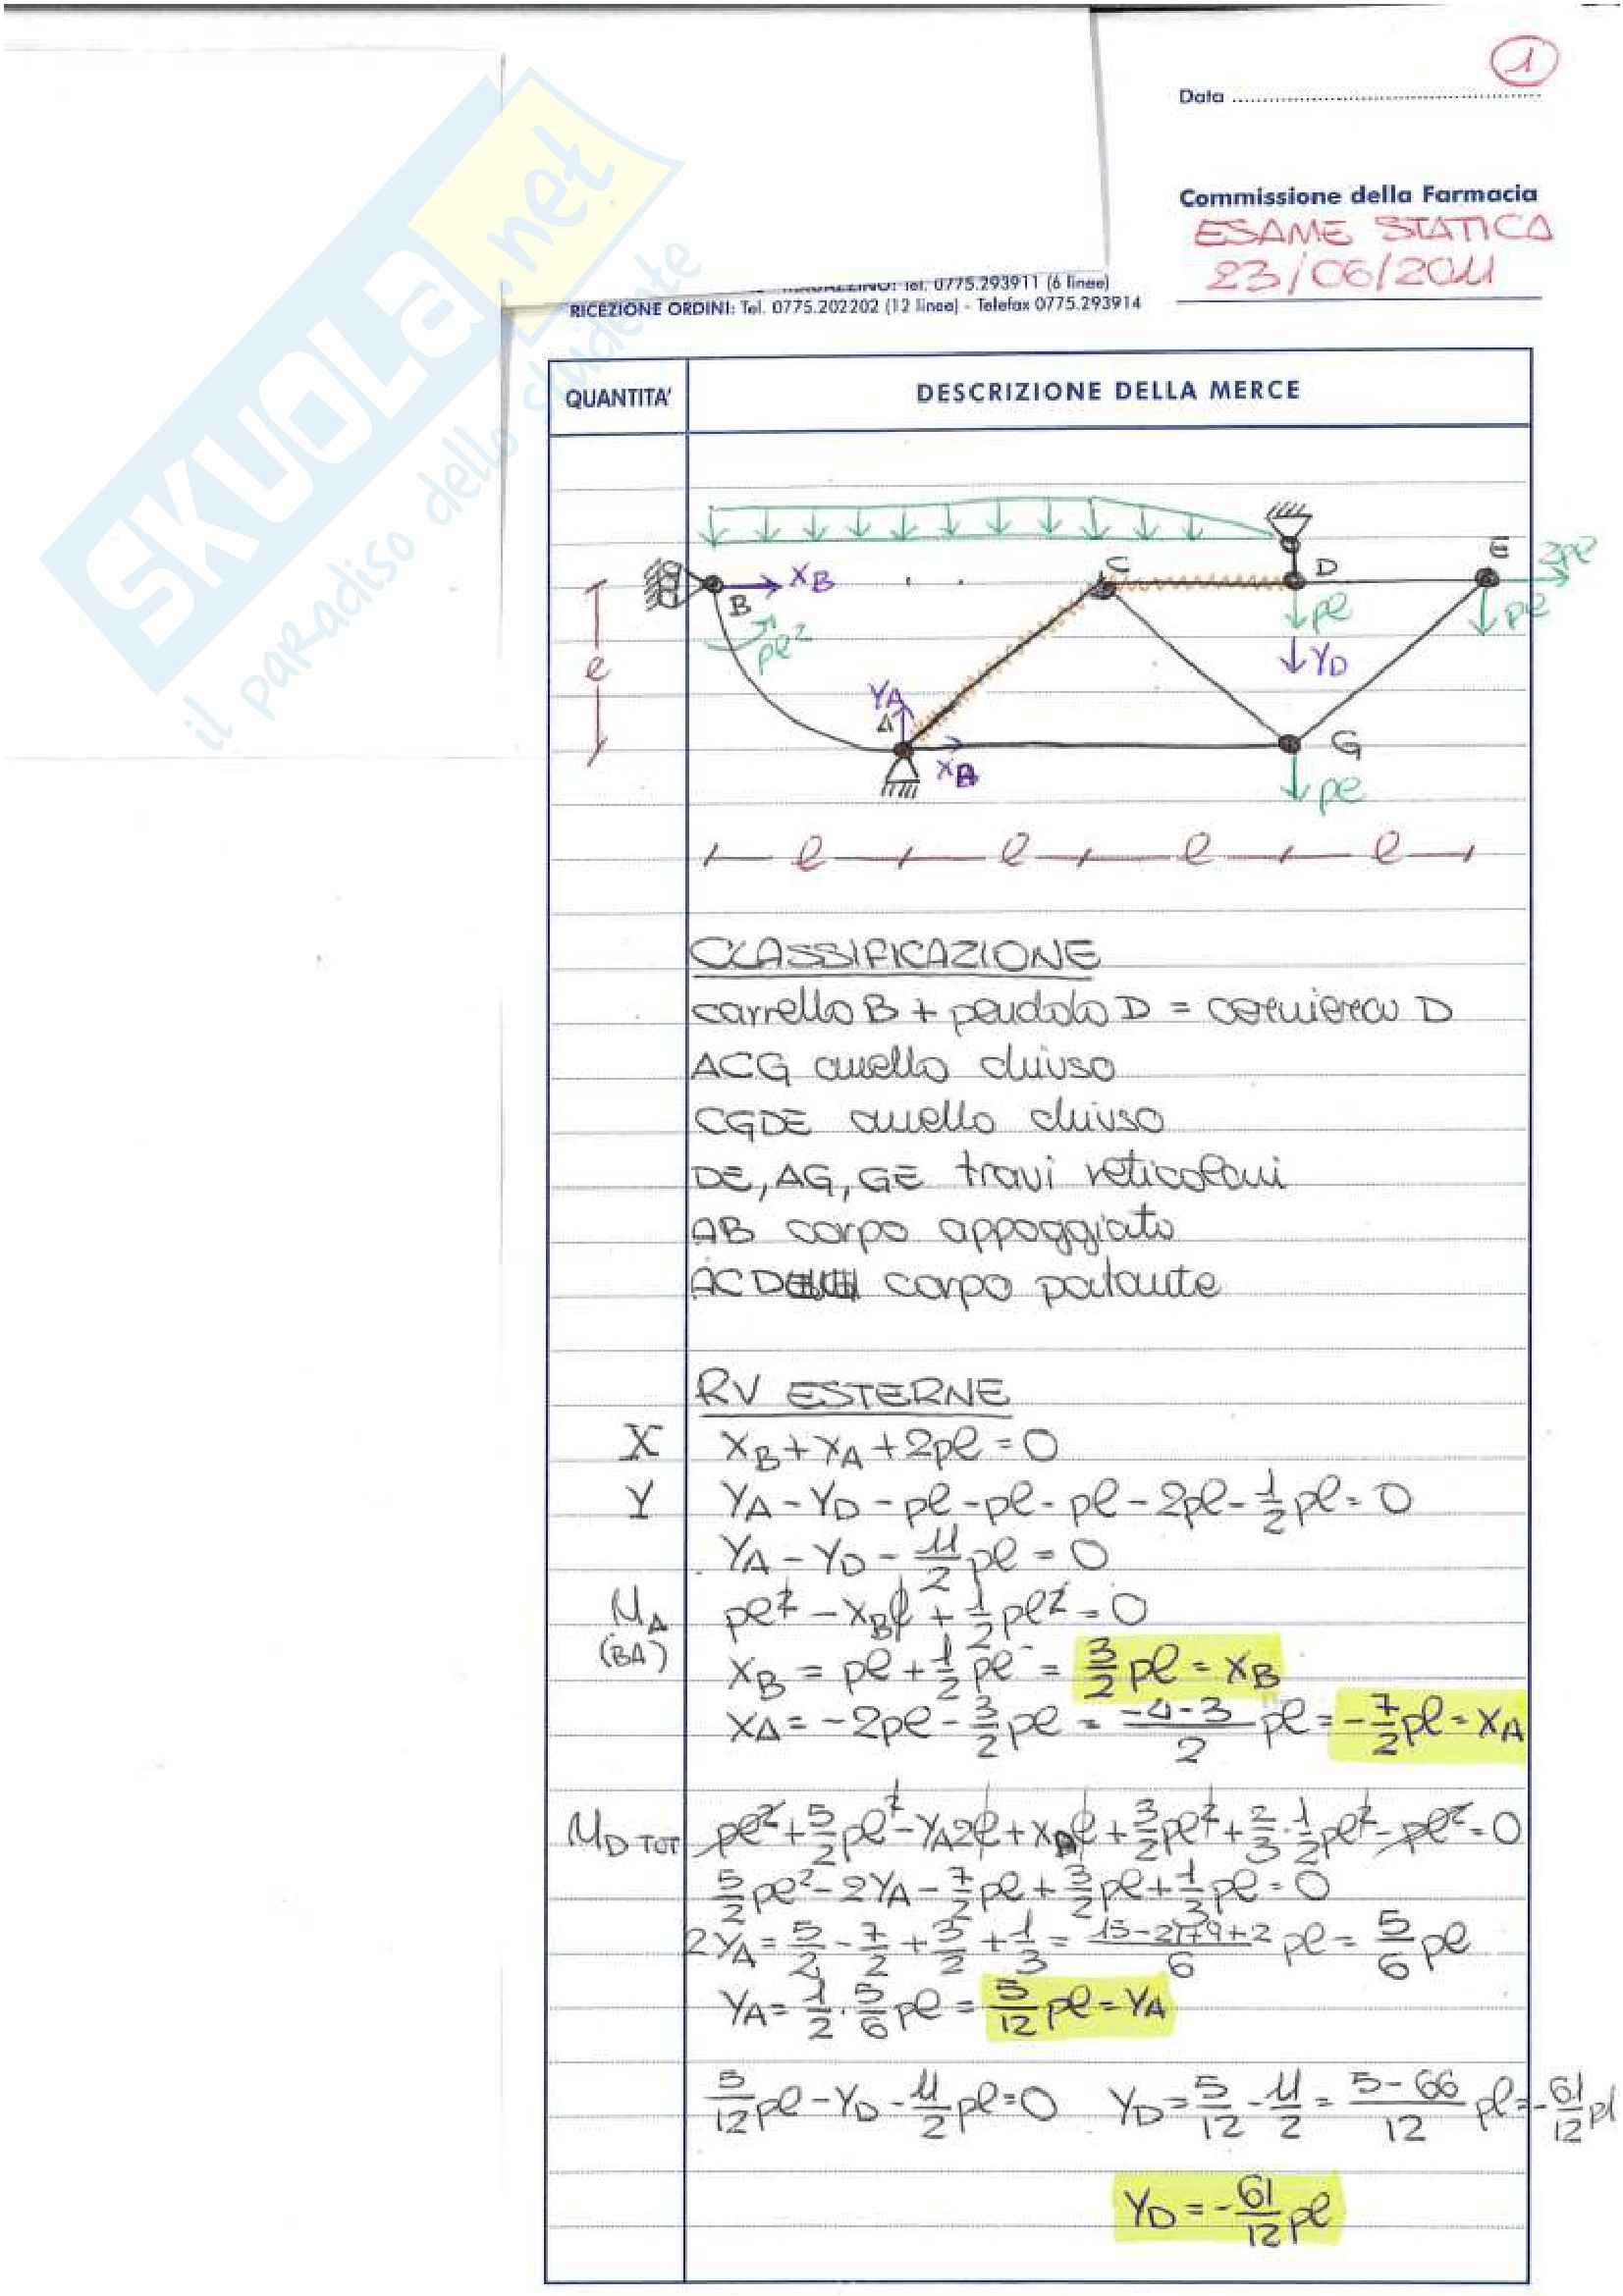 1
Data
Commissione della Farmacia
ESAME STATICA
23/06/2011
MAGAZZINO: Tel. 0775.293911 (6 linee)
RICEZIONE ORDINI: Tel. 0775.202202 (12 linee) - Telefax 0775.293914
SKUOLA.net
il paradiso dello studente
QUANTITA' DESCRIZIONE DELLA MERCE
B XB pl² C D E 2pl
pl YD pl
l YA A XA G pl
l l l l
CLASSIFICAZIONE
carrello B + pendolo D = cerniera D
ACG anello chiuso
CGDE anello chiuso
DE, AG, GE travi reticolari
AB corpo appoggiato
ACD corpo portante
RV ESTERNE
X XB + XA + 2pl = 0
Y YA - YD - pl - pl - pl - 2pl - 1/2 pl = 0
YA - YD - 11/2 pl = 0
MA (BA) pl² - XBl + 1/2 pl² = 0
XB = pl + 1/2 pl = 3/2 pl = XB
XA = -2pl - 3/2 pl = (-4-3)/2 pl = -7/2 pl = XA
MD TOT pl² + 5/2 pl² - YA2l + XAl + 3/2 pl² + 2/3 · 1/2 pl² - pl² = 0
5/2 pl² - 2YA - 7/2 pl + 3/2 pl + 1/3 pl = 0
2YA = 5/2 - 7/2 + 3/2 + 1/3 = (15-21+9+2)/6 pl = 5/6 pl
YA = 1/2 · 5/6 pl = 5/12 pl = YA
5/12 pl - YD - 11/2 pl = 0 YD = 5/12 - 11/2 = (5-66)/12 pl = -61/12 pl
YD = -61/12 pl